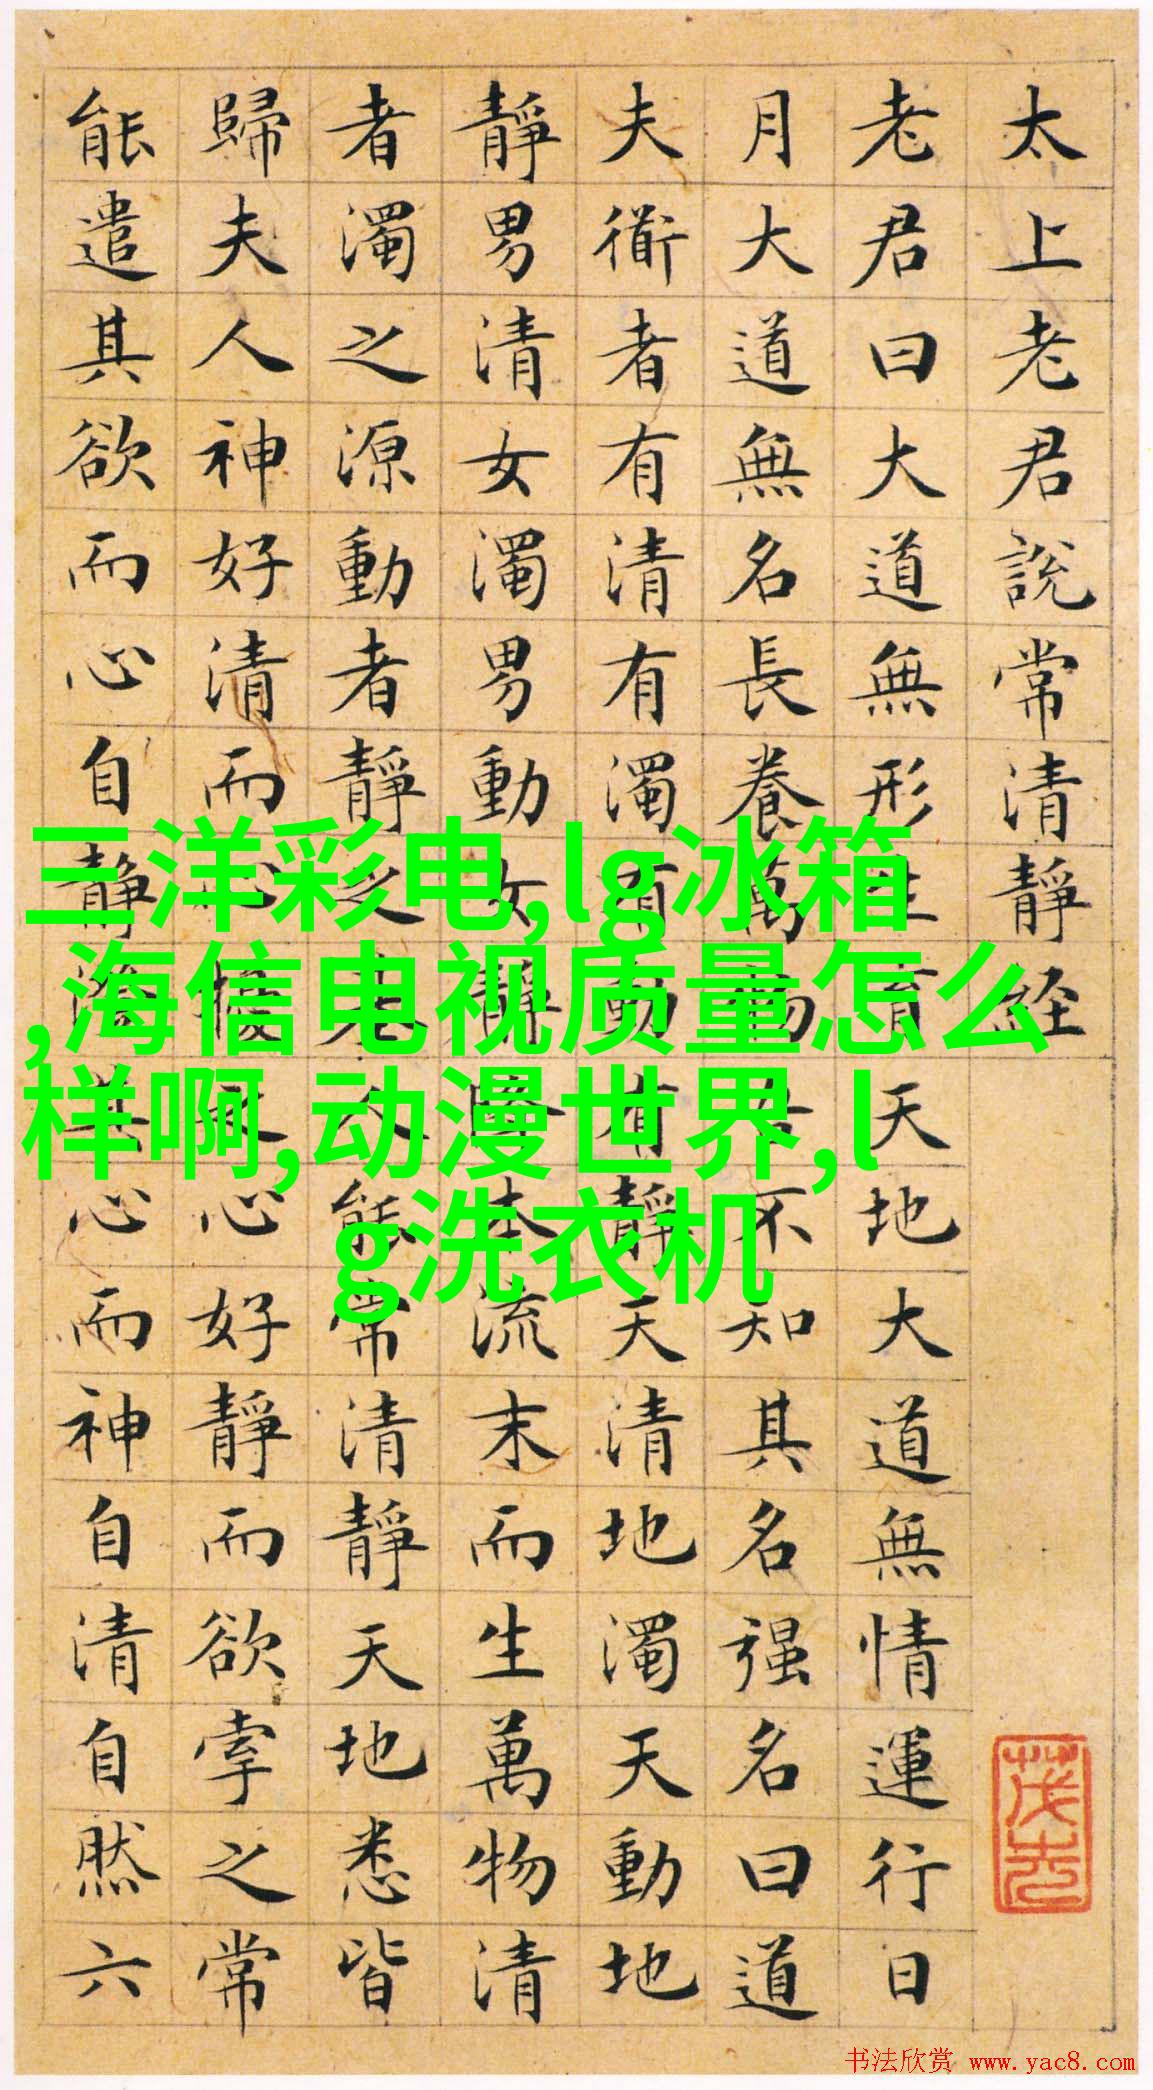 太上老君說常清靜経
老君曰大道無形生育天地大道無情運行日
月大道無名長養萬物吾不知其名强名曰道
夫衜者有清有濁有動有靜天清地濁天動地
靜男清女濁男動女靜降本流末而生萬物清
者濁之源動者靜之基人能常清靜天地悉皆
歸夫人神好清而心擾之心好靜而欲牽之常
能遣其欲而心自靜澄其心而神自清自然六
三洋彩电,lg冰箱
,海信电视质量怎么
样啊,动漫世界,l
g洗衣机
书法欣赏 www.yac8.com